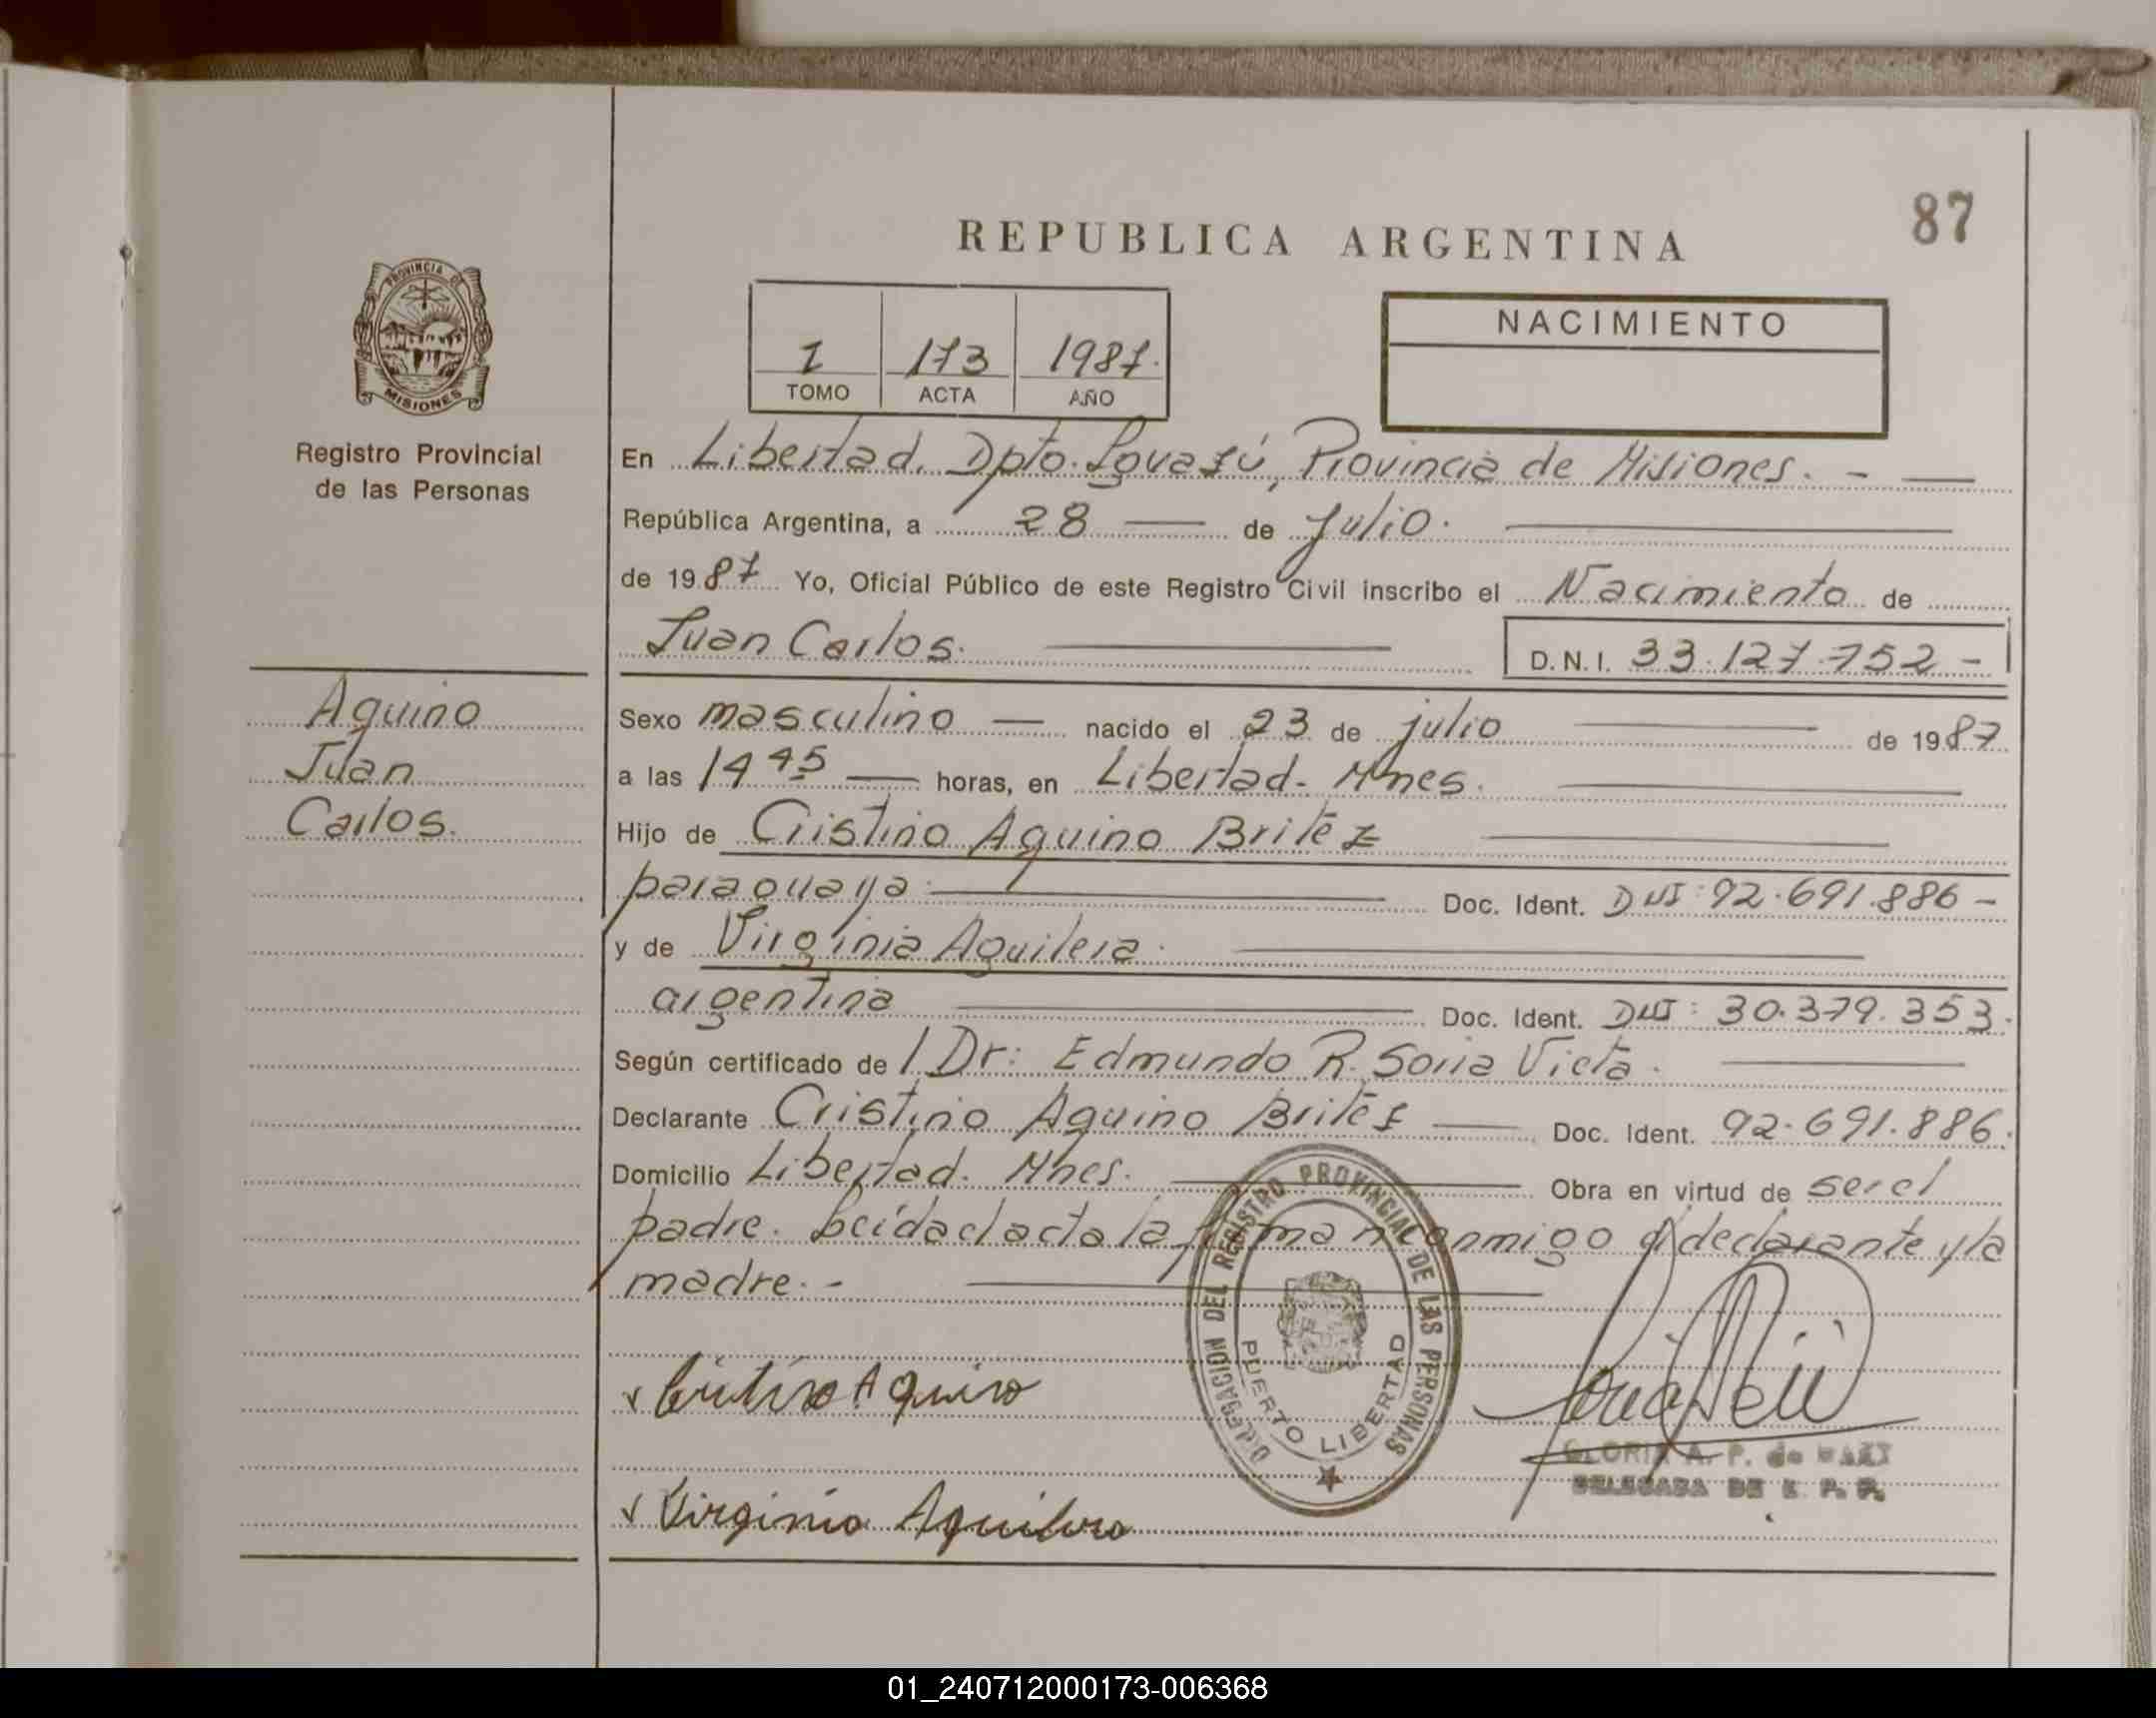 87
REPUBLICA ARGENTINA
PROVINCIA DE
MISIONES
Registro Provincial
de las Personas
I 173 1987.
TOMO ACTA AÑO
NACIMIENTO
En Libertad. Dpto. Iguazú, Provincia de Misiones. -
República Argentina, a 28 de Julio.
de 1987 Yo, Oficial Público de este Registro Civil inscribo el Nacimiento de
Juan Carlos.
D.N.I. 33.127.752-
Aquino
Juan
Carlos.
Sexo masculino nacido el 23 de julio de 1987
a las 14 45 horas, en Libertad- Mnes.
Hijo de Cristino Aquino Britez
paraguaya. Doc. Ident. DNI: 92.691.886-
y de Virginia Aguilera.
argentina Doc. Ident. DNI: 30.379.353.
Según certificado de / Dr: Edmundo R. Soria Vieta.
Declarante Cristino Aquino Britez Doc. Ident. 92.691.886.
Domicilio Libertad. Mnes. Obra en virtud de ser el
padre. Leída el acta la firman conmigo el declarante y la
madre.-
DELEGACION DEL REGISTRO PROVINCIAL DE LAS PERSONAS
PUERTO LIBERTAD
Cristino Aquino
GLORIA A. P. de
DELEGADA DE R. P. P.
Virginia Aguilera
01_240712000173-006368